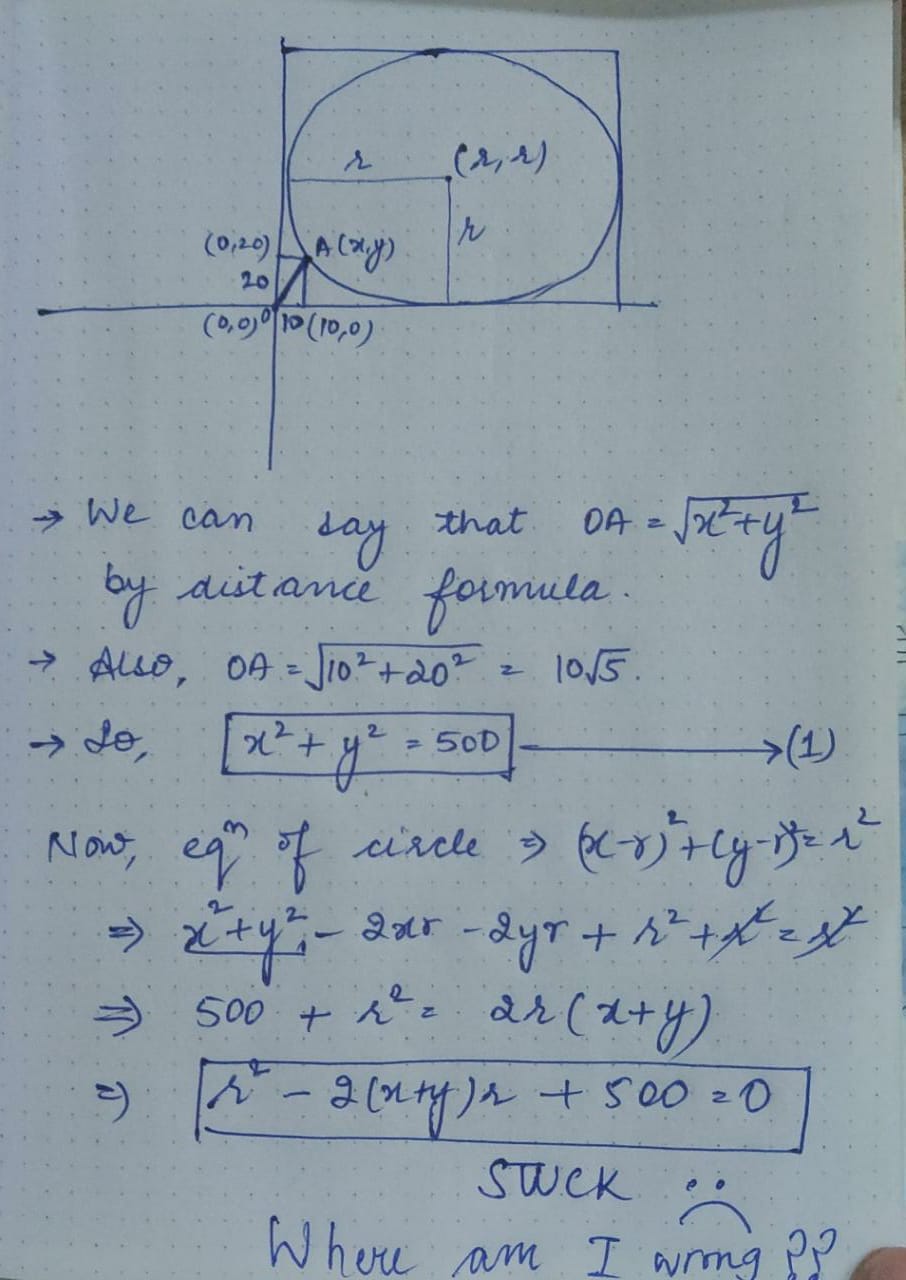 r
(r, r)
r
(0,20)
A(x,y)
20
(0,0)
0
10
(10,0)
→ We can say that OA = √x²+y²
by distance formula.
→ Also, OA = √10²+20² = 10√5.
→ So, x²+y² = 500 → (1)
Now, eqⁿ of circle ⇒ (x-r)²+(y-r)²=r²
⇒ x²+y² - 2xr - 2yr + r² + r² = r²
⇒ 500 + r² = 2r(x+y)
⇒ r² - 2(x+y)r + 500 = 0
STUCK
Where am I wrong??